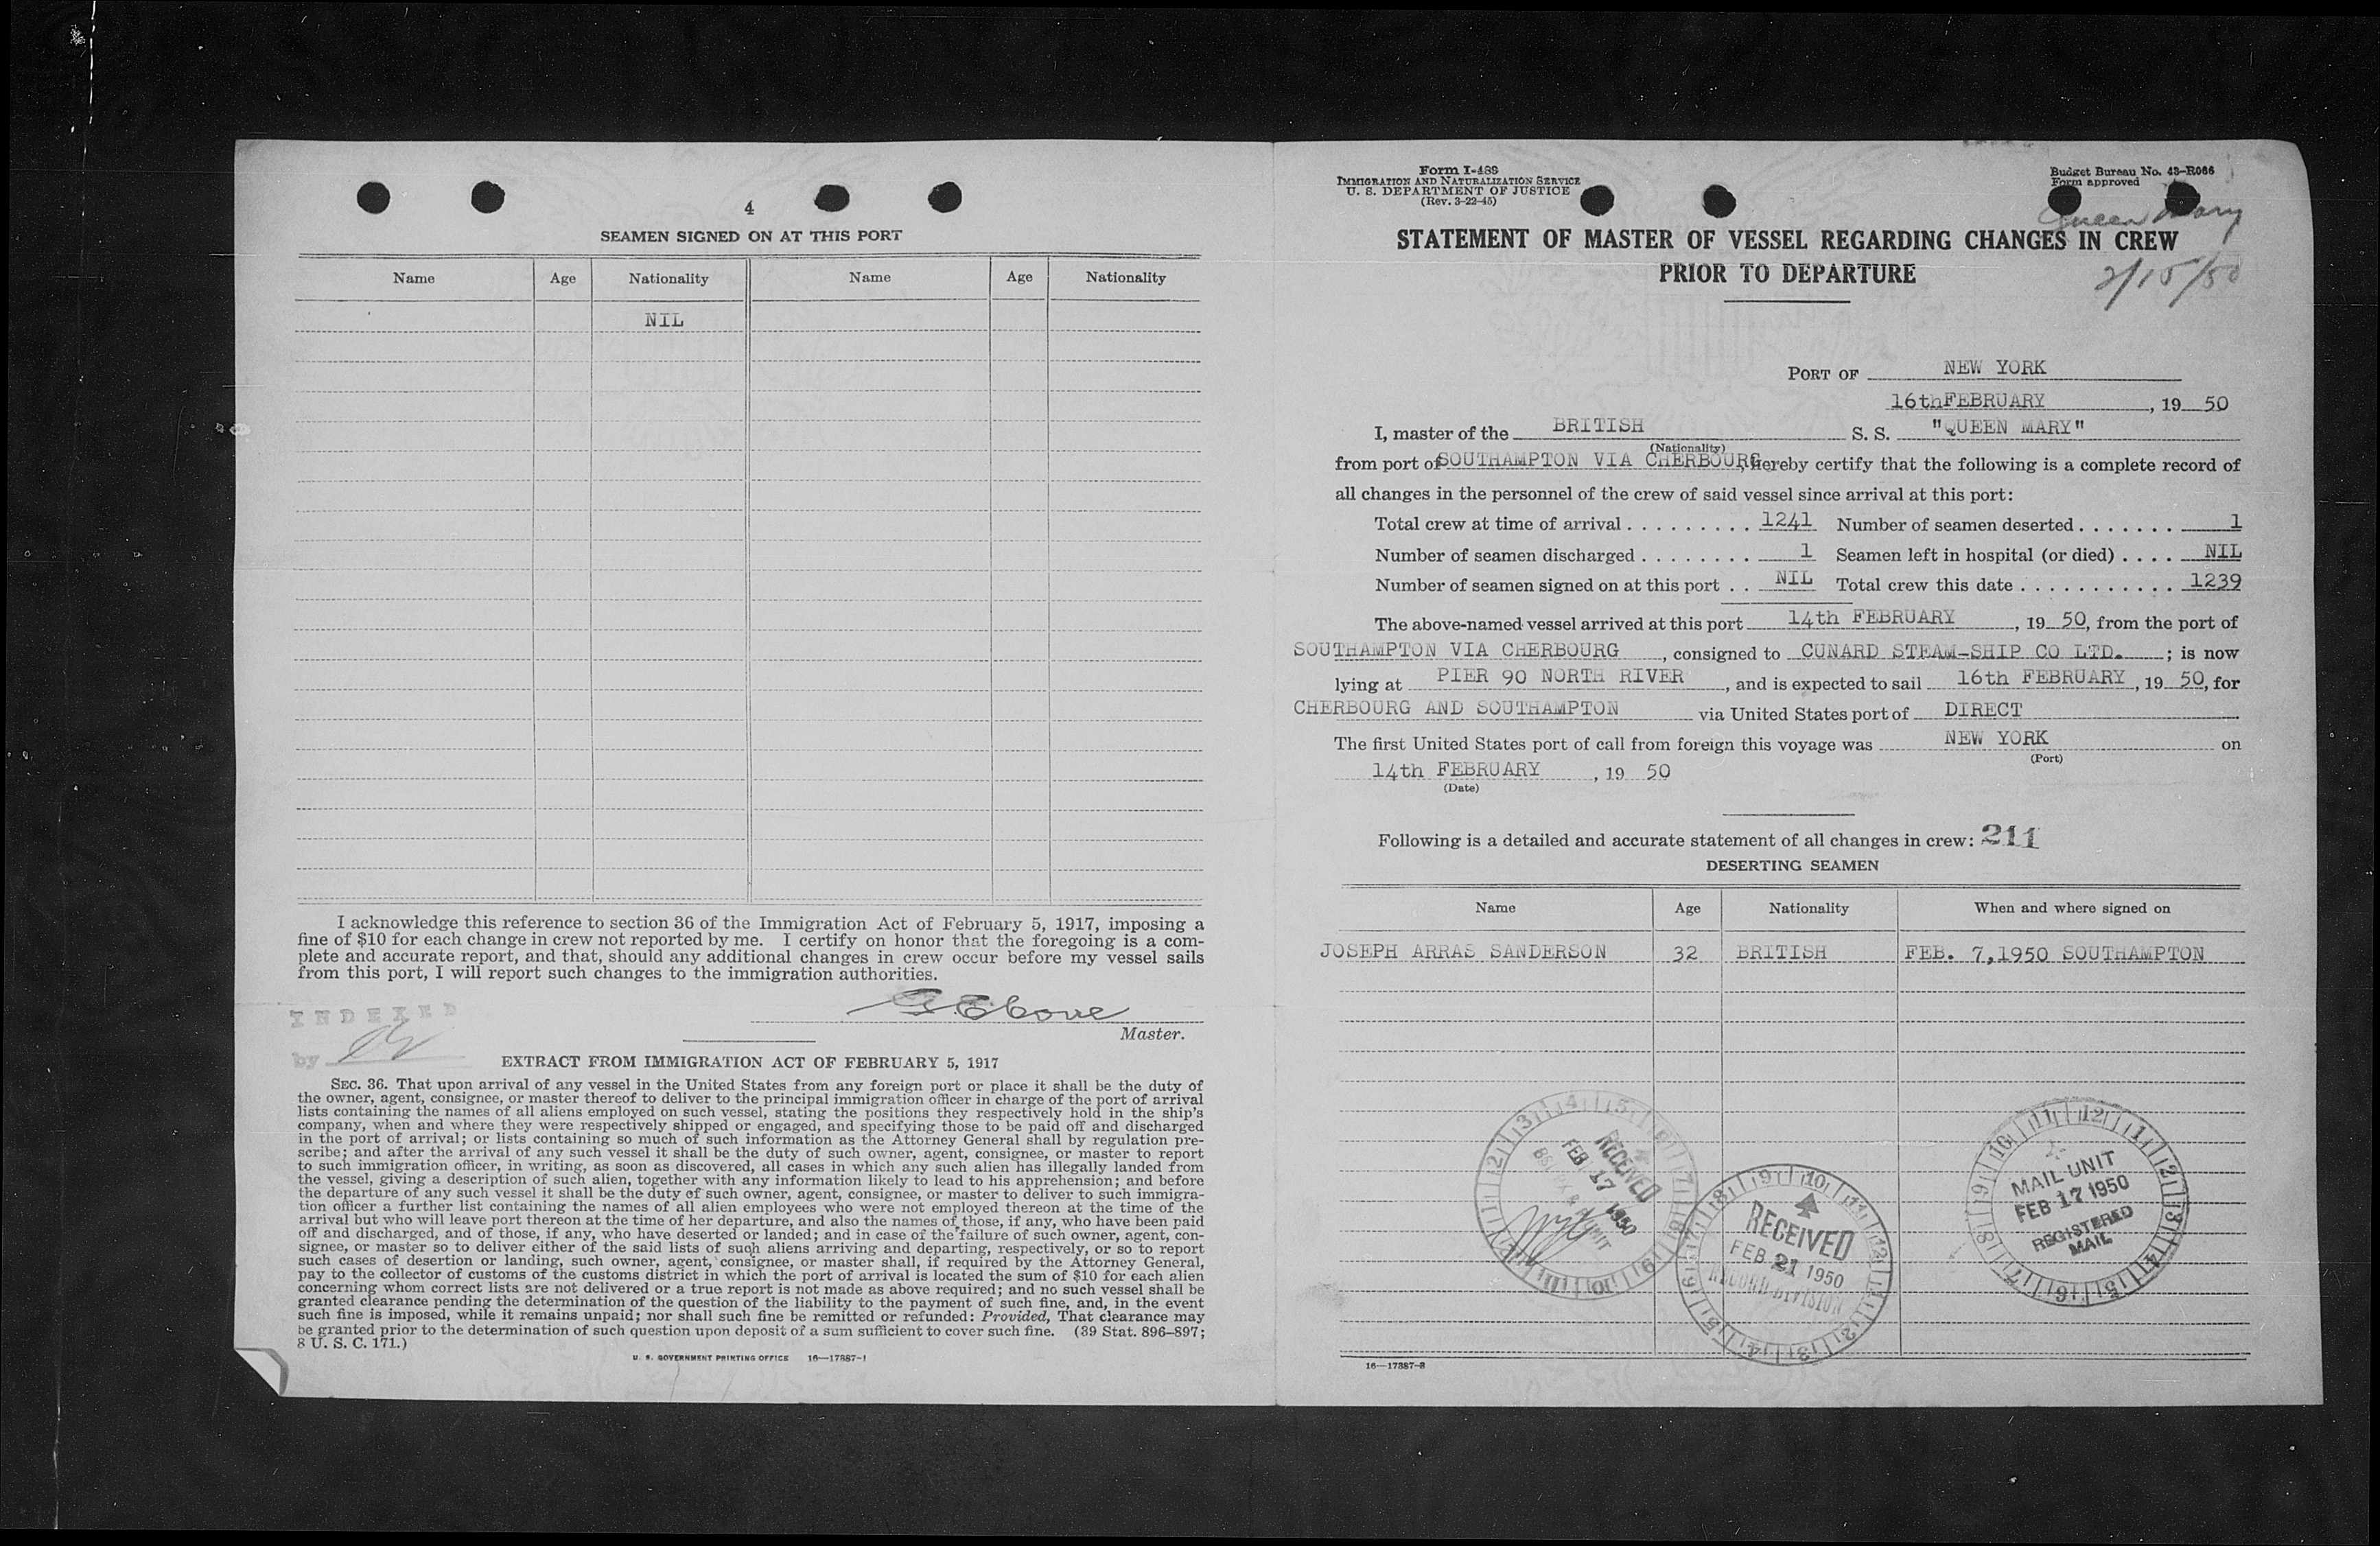 4
SEAMEN SIGNED ON AT THIS PORT
Name Age Nationality Name Age Nationality
NIL
I acknowledge this reference to section 36 of the Immigration Act of February 5, 1917, imposing a
fine of $10 for each change in crew not reported by me. I certify on honor that the foregoing is a com-
plete and accurate report, and that, should any additional changes in crew occur before my vessel sails
from this port, I will report such changes to the immigration authorities.
INDEXED
by
Master.
EXTRACT FROM IMMIGRATION ACT OF FEBRUARY 5, 1917
SEC. 36. That upon arrival of any vessel in the United States from any foreign port or place it shall be the duty of
the owner, agent, consignee, or master thereof to deliver to the principal immigration officer in charge of the port of arrival
lists containing the names of all aliens employed on such vessel, stating the positions they respectively hold in the ship's
company, when and where they were respectively shipped or engaged, and specifying those to be paid off and discharged
in the port of arrival; or lists containing so much of such information as the Attorney General shall by regulation pre-
scribe; and after the arrival of any such vessel it shall be the duty of such owner, agent, consignee, or master to report
to such immigration officer, in writing, as soon as discovered, all cases in which any such alien has illegally landed from
the vessel, giving a description of such alien, together with any information likely to lead to his apprehension; and before
the departure of any such vessel it shall be the duty of such owner, agent, consignee, or master to deliver to such immigra-
tion officer a further list containing the names of all alien employees who were not employed thereon at the time of the
arrival but who will leave port thereon at the time of her departure, and also the names of those, if any, who have been paid
off and discharged, and of those, if any, who have deserted or landed; and in case of the failure of such owner, agent, con-
signee, or master so to deliver either of the said lists of such aliens arriving and departing, respectively, or so to report
such cases of desertion or landing, such owner, agent, consignee, or master shall, if required by the Attorney General,
pay to the collector of customs of the customs district in which the port of arrival is located the sum of $10 for each alien
concerning whom correct lists are not delivered or a true report is not made as above required; and no such vessel shall be
granted clearance pending the determination of the question of the liability to the payment of such fine, and, in the event
such fine is imposed, while it remains unpaid; nor shall such fine be remitted or refunded: Provided, That clearance may
be granted prior to the determination of such question upon deposit of a sum sufficient to cover such fine. (39 Stat. 896–897;
8 U. S. C. 171.)
U. S. GOVERNMENT PRINTING OFFICE 16—17887-1
Form I-489
IMMIGRATION AND NATURALIZATION SERVICE
U. S. DEPARTMENT OF JUSTICE
(Rev. 3-22-45)
Budget Bureau No. 43-R066
Form approved
Queen Mary
STATEMENT OF MASTER OF VESSEL REGARDING CHANGES IN CREW
PRIOR TO DEPARTURE
2/15/50
PORT OF NEW YORK
16thFEBRUARY, 19 50
I, master of the BRITISH S. S. "QUEEN MARY"
(Nationality)
from port of SOUTHAMPTON VIA CHERBOURG, hereby certify that the following is a complete record of
all changes in the personnel of the crew of said vessel since arrival at this port:
Total crew at time of arrival . . . . . . . . . 1241 Number of seamen deserted . . . . . . . 1
Number of seamen discharged . . . . . . . . 1 Seamen left in hospital (or died) . . . . NIL
Number of seamen signed on at this port . . NIL Total crew this date . . . . . . . . . . . 1239
The above-named vessel arrived at this port 14th FEBRUARY, 19 50, from the port of
SOUTHAMPTON VIA CHERBOURG, consigned to CUNARD STEAM-SHIP CO LTD. ; is now
lying at PIER 90 NORTH RIVER, and is expected to sail 16th FEBRUARY, 19 50, for
CHERBOURG AND SOUTHAMPTON via United States port of DIRECT
The first United States port of call from foreign this voyage was NEW YORK on
(Port)
14th FEBRUARY, 19 50
(Date)
Following is a detailed and accurate statement of all changes in crew: 211
DESERTING SEAMEN
Name Age Nationality When and where signed on
JOSEPH ARRAS SANDERSON 32 BRITISH FEB. 7,1950 SOUTHAMPTON
RECEIVED
FEB 17 1950
RECEIVED
FEB 21 1950
RECORD DIVISION
MAIL UNIT
FEB 17 1950
REGISTERED
MAIL
16—17887-3